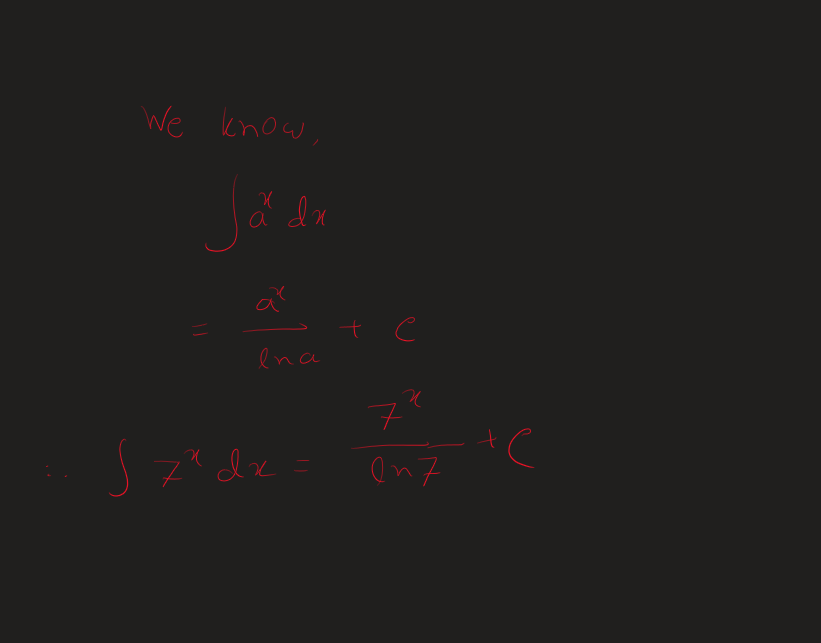 We know,
∫ aˣ dx
= aˣ / ln a + c
∴ ∫ 7ˣ dx = 7ˣ / ln 7 + C